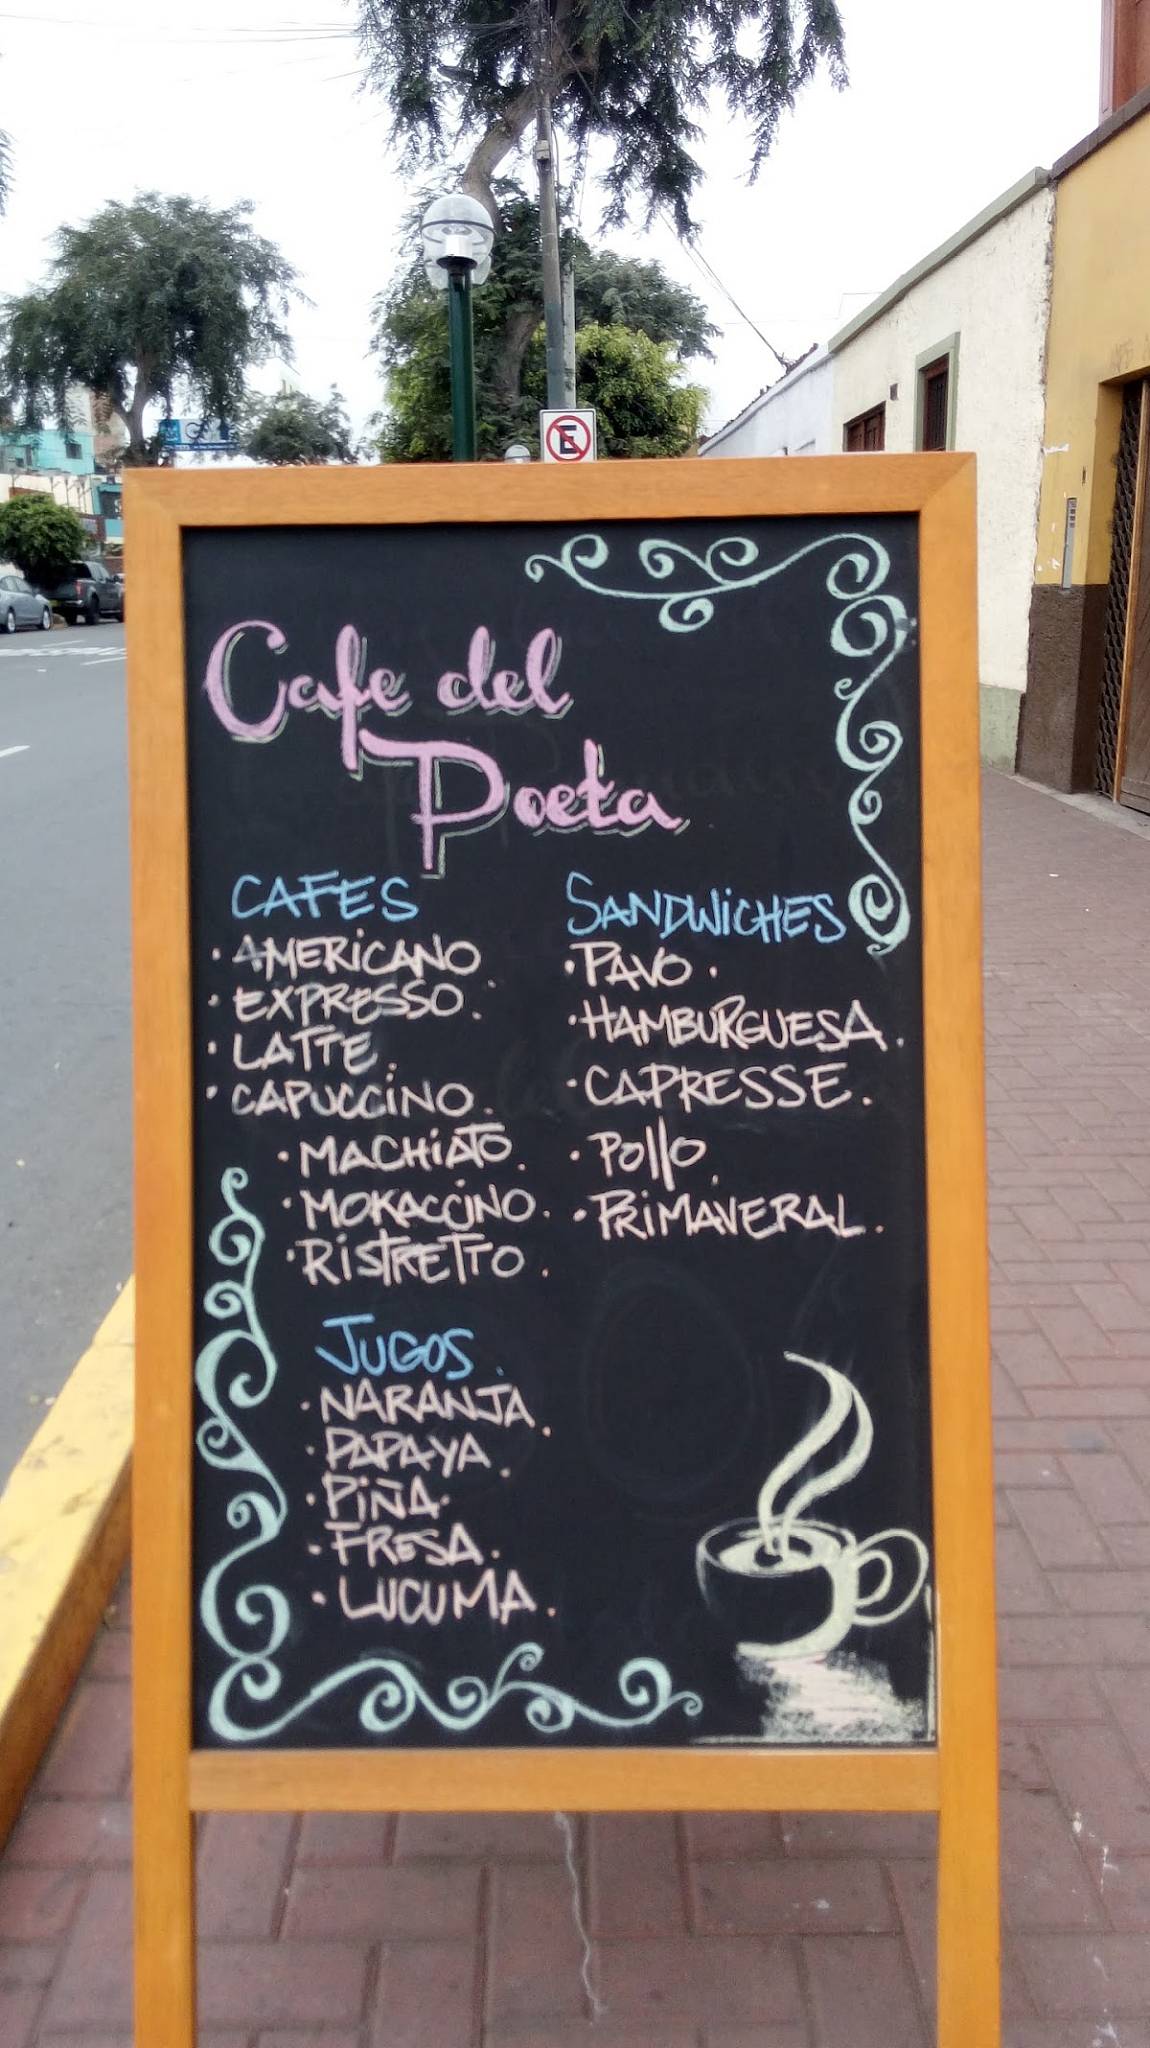 E
Cafe del
Poeta
CAFES
· AMERICANO
· EXPRESSO.
· LATTE.
· CAPUCCINO.
· MACHIATO.
· MOKACCINO.
· RISTRETTO.
SANDWICHES
· PAVO.
· HAMBURGUESA.
· CAPRESSE.
· Pollo.
· PRIMAVERAL.
JUGOS.
· NARANJA.
· PAPAYA.
· PIÑA.
· FRESA.
· LUCUMA.